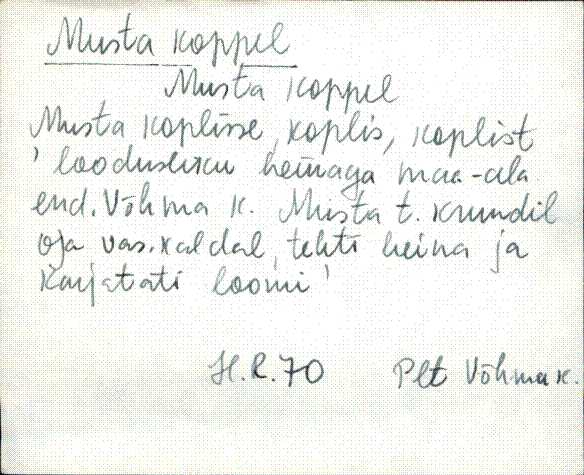 Musta koppel
Musta koppel
Musta koplisse, koplis, koplist
' loodusliku heinaga maa-ala
end. Võhma k. Musta t. krundil
oja vas. kaldal, tehti heina ja
karjatati loomi '
H.R. 70 Plt Võhma k.